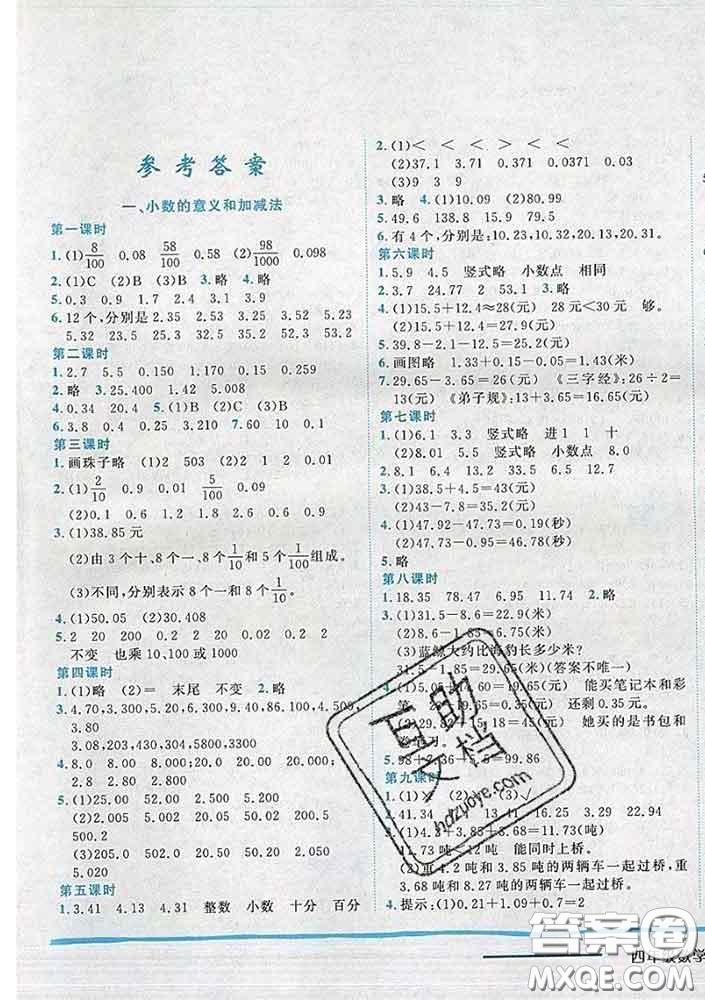 参考答案
一、小数的意义和加减法
第一课时
1.(1)8/100 0.08 58/100 0.58 (2)98/1000 0.098
2.(1)C (2)B 3.略 4.略
5.0.3 0.9 1.7 2.4
6.12个,分别是2.35 2.53 3.52 3.25 5.23
5.32 23.5 25.3 32.5 35.2 52.3 53.2
第二课时
1.2.7 5.5 0.150 1.50 0.170 1.70
2.略 3.25.400 1.45 2.008 5.008
4.0.34 20.4 5.(1)B (2)C (3)B
6.3.8 0.9 4.8 5.9 7.60 10 0.1
第三课时
1.画珠子略 (1)2 503 (2)2 1 2
2.(1)2/10 0.9 0.01 5/100 0.5 0.09
(2)0.1 0.6 0.2 0.01 0.06 0.02
3.(1)38.85元
(2)由3个十、8个一、8个1/10和5个1/100组成。
(3)不同,分别表示8个一和8个1/10。
4.(1)50.05 (2)30.408
5.2 20 200 0.02 0.02 0.2 2
不变 也乘10,100或1000
第四课时
1.(1)略 (2)= 末尾 不变 2.略
3.4.70,3.300,5.20,6.900,86.100,4.508,
3.80
3.08,203,530,9.0010,40.506
4.8.0 8.00 8.000; 2.0 2.00 2.000;
20.0 20.00 20.000; 120.0 120.00
120.000
5.(1)25.00 52.00 2.500 5.200
(2)2.005 2.002 5.002 200.5
500.2
(3)205.0 502.0 2.050 5.020
第五课时
1.3.41 4.13 4.31 整数 小数 十分 百分
2.(1)< < < <
(2)37.1 3.71 0.371 0.0371 0.03
(3)9 3 9
3.略 4.(1)10.09 (2)80.99
5.49.6 138.8 15.9 79.0
6.有4个,分别是:10.23,10.32,20.13,20.31。
第六课时
1.5.9 4.5 竖式略 小数点 相同
2.3.7 24.77 2 53.2 3.略
4.(1)15.5+12.4≈28(元) 28元<30元 够。
(2)15.5-12.4=3.1(元)
5.39.8-0.9-1.2=37.7(米)
6.画图略 1.33+0.15-0.88=0.6(米)
7.29.65-3.65=26(元) 《三字经》:26÷2=
13(元)《弟子规》:13+3.65=16.65(元)
第七课时
1.(1)6.1 3.3 竖式略 进1 1 十
(2)5.6 7.7 竖式略 小数点 小数点
2.8.1 6.4 13.2 5.5 8.65 12.7
3.(1)38.5+4.5=43(元)
(2)43-7.8=35.2(元)
4.(1)47.92-47.73=0.19(秒)
(2)47.73-46.91=0.82(秒)
5.略
第八课时
1.18.35 78.47 6.95 11.74 2.略
3.(1)31.5-1.85=29.65(米)
(2)8.6-1.85=6.75(米)
(3)蓝鲸大约比海豹长多少米?
31.5-1.85=29.65(米)(答案不唯一)
能买笔记本和彩
还剩0.35元。
她买的是书包和
第九课时
2.41.34 13.41 16.25 3.29 22.94
3.(1)4.3+3.85+3.68=11.73(吨)
11.73吨<12吨 能同时上桥。
(2)重4.3吨和3.85吨的两辆车一起过桥,重
3.68吨和8.27吨的两辆车一起过桥。
4.提示:(1)0.21+1.09+0.7=2
互助文档
hdzuoye.com
答案圈
MXQE.COM
四年级数学